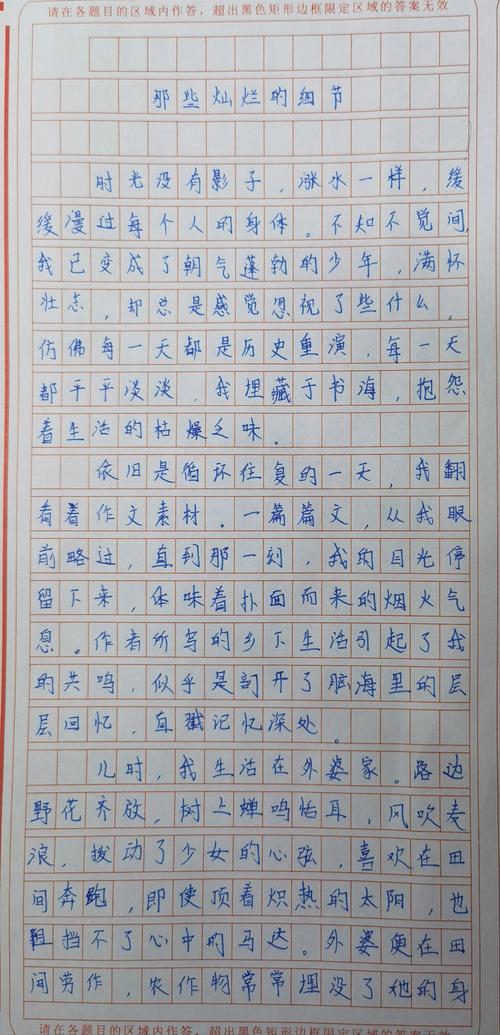 请在各题目的区域内作答，超出黑色矩形边框限定区域的答案无效
那些灿烂的细节
时光没有影子，涨水一样，缓
缓漫过每个人的身体。不知不觉间，
我已变成了朝气蓬勃的少年，满怀
壮志，却总是感觉忽视了些什么。
仿佛每一天都是历史重演，每一天
都平平淡淡，我埋藏于书海，抱怨
着生活的枯燥乏味．
依旧是循环往复的一天，我翻
看着作文素材．一篇篇文，从我眼
前略过，直到那一刻，我的目光停
留下来，体味着扑面而来的烟火气
息。作者所写的乡下生活引起了我
的共鸣，似乎是剖开了脑海里的层
层回忆，直戳记忆深处。
儿时，我生活在外婆家。路边
野花齐放，树上蝉鸣恬耳，风吹麦
浪，拨动了少女的心弦，喜欢在田
间奔跑，即使顶着炽热的太阳，也
阻挡不了心中的马达。外婆便在田
间劳作，农作物常常埋没了他的身
请在各题目的区域内作答，超出黑色矩形边框限定区域的答案无效